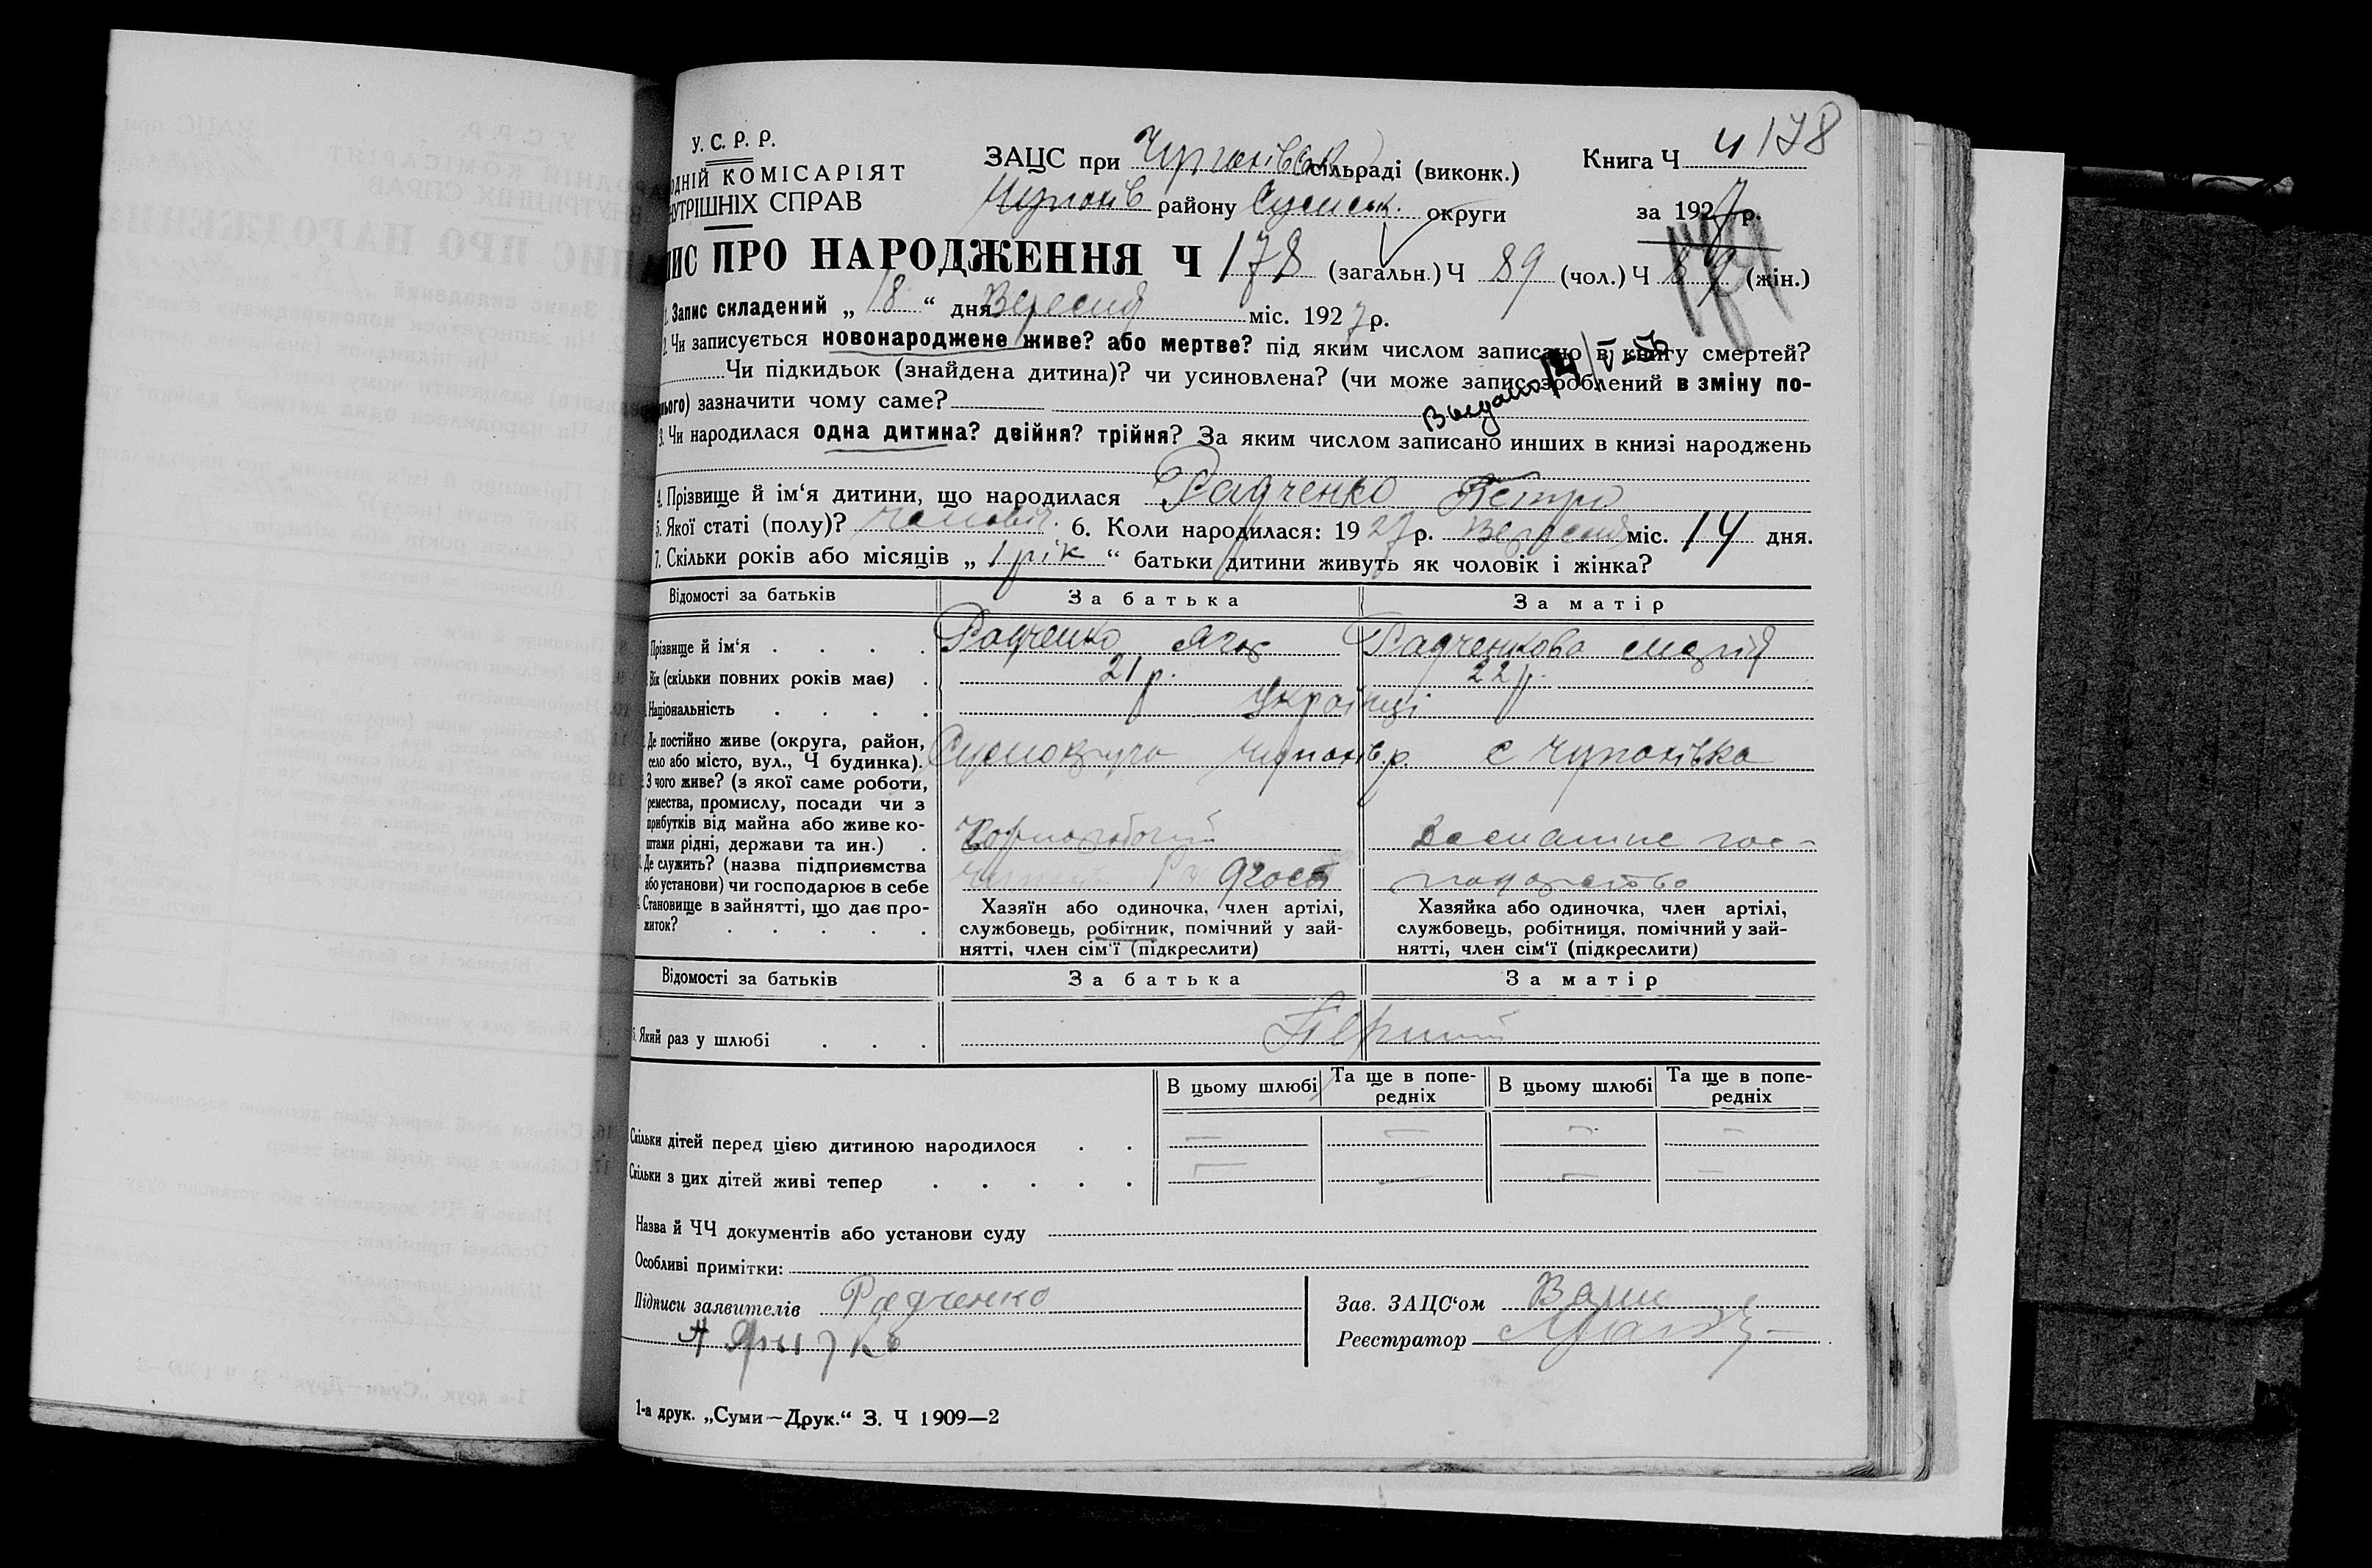 У. С. Р. Р.
ОДНІЙ КОМІСАРІЯТ
НУТРІШНІХ СПРАВ
ЗАЦС при сільраді (виконк.)
району Сумськ. округи
Книга Ч 4 178
за 1927 р.
ПИС ПРО НАРОДЖЕННЯ Ч 178 (загальн.) Ч 89 (чол.) Ч 89 (жін.)
1. Запис складений „ 18 “ дня Вересня міс. 1927 р.
2. Чи записується новонароджене живе? або мертве? під яким числом записано в книгу смертей?
Чи підкидьок (знайдена дитина)? чи усиновлена? (чи може запис зроблений в зміну по-
нього) зазначити чому саме?
Выдано 14/V-56
3. Чи народилася одна дитина? двійня? трійня? За яким числом записано инших в книзі народжень
4. Прізвище й ім‘я дитини, що народилася Радченко Петро
5. Якої статі (полу)? чоловіч. 6. Коли народилася: 1927 р. Вересня міс. 14 дня.
7. Скільки років або місяців „ 1 рік “ батьки дитини живуть як чоловік і жінка?
Відомості за батьків За батька За матір
Прізвище й ім‘я . . . . Радченко Яков Радченкова Марія
Вік (скільки повних років має) . 21 р. 22 р.
Національність . . . . Українці
Де постійно живе (округа, район,
село або місто, вул., Ч будинка).
Сумокруга р. с
З чого живе? (з якої саме роботи,
ремества, промислу, посади чи з
прибутків від майна або живе ко-
штами рідні, держави та ин.) .
Чорноробочий Домашнє гос-
Де служить? (назва підприємства
або установи) чи господарює в себе
подарство
Становище в зайнятті, що дає про-
житок? . . . . .
Хазяїн або одиночка, член артілі,
службовець, робітник, помічний у зай-
нятті, член сім‘ї (підкреслити)
Хазяйка або одиночка, член артілі,
службовець, робітниця, помічний у зай-
нятті, член сім‘ї (підкреслити)
Відомості за батьків За батька За матір
Який раз у шлюбі . . . Перший
В цьому шлюбі Та ще в попе-
редніх В цьому шлюбі Та ще в попе-
редніх
Скільки дітей перед цією дитиною народилося . . — — — —
Скільки з цих дітей живі тепер . . . . . — — — —
Назва й ЧЧ документів або установи суду
Особливі примітки:
Підписи заявителів Радченко
Зав. ЗАЦС‘ом
Реєстратор
1-а друк. „Суми—Друк.“ З. Ч 1909—2